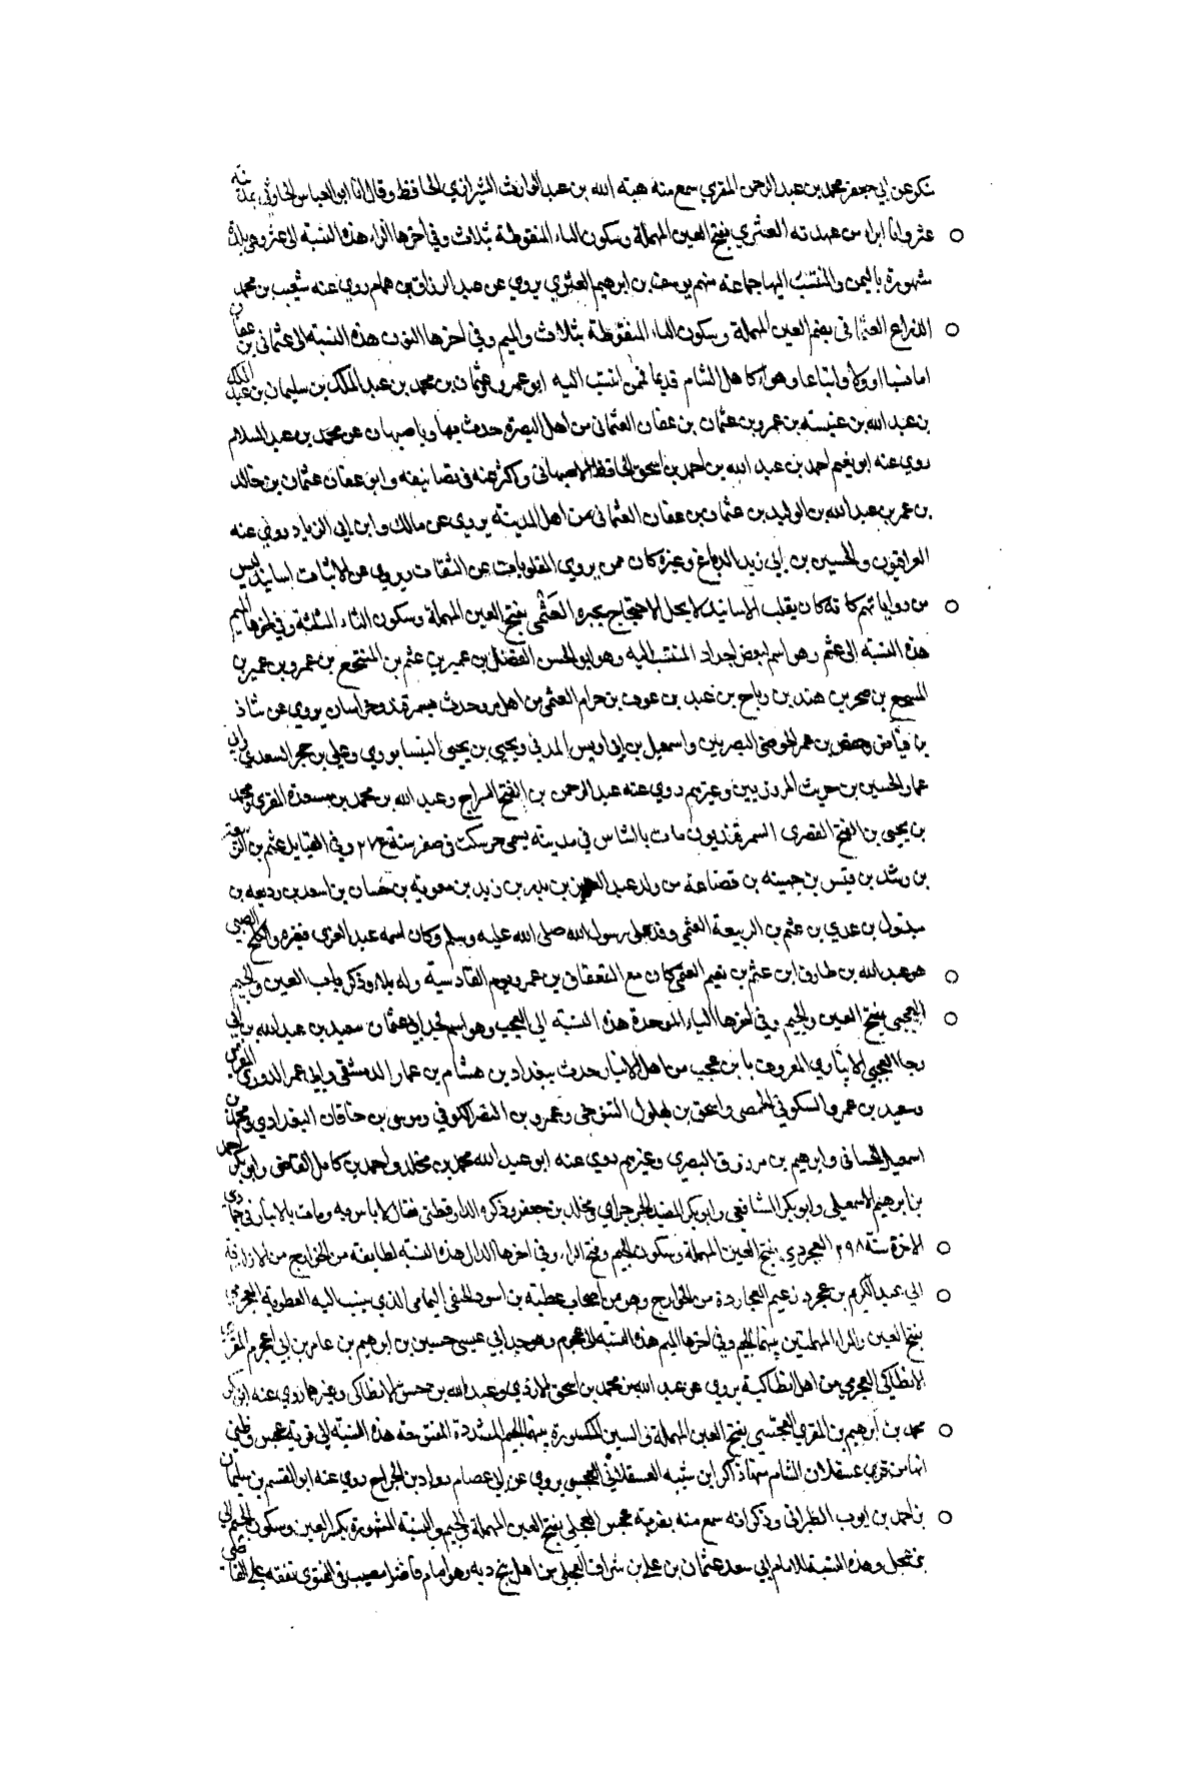 شكو عن ابي جعفر محمد بن عبد الرحمن المقري سمع منه هبة الله بن عبد الوارث الشيرازي الحافظ وقال انا ابو العباس
عثر وانا العثري بفتح العين المهملة وسكون الثاء المنقوطة بثلاث وفي اخرها الراء هذه النسبة الى عثر وهي بلدة
مشهورة باليمن والمنتسب اليها جماعة منهم يوسف بن ابرهيم العثري يروي عن عبد الرزاق بن همام روى عنه شعيب بن محمد
الذراع العثماني بضم العين المهملة وسكون الثاء المنقوطة بثلاث والميم وفي اخرها النون هذه النسبة الى عثمان بن عفان
اما نسبا او ولاء واتباعا وهواء كاهل الشام قديما فمن انتسب اليه ابو عمرو عثمان بن محمد بن عبد الملك بن سليمان بن عبد الملك
بن عبد الله بن عنبسة بن عمرو بن عثمان بن عفان العثماني من اهل البصرة حدث بها وباصبهان عن محمد بن عبد السلام
روى عنه ابو نعيم احمد بن عبد الله بن احمد بن اسحق الحافظ الاصبهاني واكثر عنه في تصانيفه وابو عفان عثمان بن خالد
بن عمر بن عبد الله بن الوليد بن عثمان بن عفان العثماني من اهل المدينة يروي عن مالك وابن ابي الزناد روى عنه
العراقيون والحسين بن ابي زيد الدباغ وغيره كان ممن يروي المقلوبات عن الثقات ويروي عن الاثبات اسانيد ليس
من رواياتهم كانه كان يقلب الاسانيد لا يحل الاحتجاج بخبره العثمي بفتح العين المهملة وسكون الثاء المثلثة وفي اخرها الميم
هذه النسبة الى عثم وهو اسم لبعض اجداد المنتسب اليه وهو ابو الحسن الفضل بن عمير بن عثم بن المنتجع بن عمرو بن عمير بن
بن هند بن رباح بن عبد بن عوف بن حرام العثمي من اهل مرو حدث بسمرقند وخراسان يروي عن شاذ
بن فياض وحفص بن عمر الحوضي البصريين واسمعيل بن ابي اويس المدني ويحيى بن يحيى النيسابوري وعلي بن حجر السعدي وابي
عمار الحسين بن حريث المروزيين وغيرهم روى عنه عبد الرحمن بن الفتح السراج وعبد الله بن محمد بن مسعدة المقري ومحمد
بن يحيى بن الفتح القصري السمرقنديون مات بالشاس في مدينة يسمى خرسكت في صفر سنة وفي القبايل عثم بن الربعة
بن رشد بن قيس بن جهينة بن قضاعة من ولده عبد العزيز بن بدر بن زيد بن معوية بن خسان بن اسعد بن وديعة بن
مبذول بن عدي بن عثم بن الربيعة العثمي وفد على رسول الله صلى الله عليه وسلم وكان اسمه عبد العزى فغيره الضبي
هو عبد الله بن طارق ابن عثم بن نعيم العثمي كان مع القعقاع بن عمرو يوم القادسية وله بلاء وذكر باب العين والجيم
العجبي بفتح العين والجيم وفي اخرها الباء الموحدة هذه النسبة الى العجب وهو اسم لجد ابي عثمان سعيد بن عبد الله بن ابي
رجا العجبي الانباري المعروف بابن عجب من اهل الانبار حدث ببغداد بن هشام بن عمار الدمشقي وابي عمر الدوري المقري
وسعيد بن عمرو السكوني الحمصي واسحق بن بهلول التنوخي وعمرو بن النضر الكوفي وموسى بن خاقان البغدادي ومحمد بن
اسمعيل الحساني وابرهيم بن مرزوق البصري وغيرهم روى عنه ابو عبد الله محمد بن مخلد واحمد بن كامل القاضي وابو بكر احمد
بن ابرهيم الاسمعيلي وابو بكر الشافعي وابو بكر المفيد الجرجراي ومخلد بن جعفر وذكره الدارقطني فقال لا باس به ومات بالانبار في جمادى
الاخرة سنة ٢٩٨ العجردي بفتح العين المهملة وسكون الجيم وفتح الراء وفي اخرها الدال هذه النسبة لطايفة من الخوارج من الازارقة
الى عبد الكريم بن عجرد زعيم العجاردة من الخوارج وهو من اصحاب عطية بن اسود الحنفي اليمامي الذي ينسب اليه العطوية العجرمي
بفتح العين والراء المهملتين بينهما الجيم وفي اخرها الميم هذه النسبة الى عجرم وهو جد ابي عيسى حسين بن ابرهيم بن عامر بن ابي عجرم المقري
الانطاكي العجرمي من اهل انطاكية يروي عن عبد الله بن محمد بن اسحق الاذرمي وعبد الله بن خبيق الانطاكي وغيرهما روى عنه ابو بكر
محمد بن ابرهيم بن المقري العجسي بفتح العين المهملة والسين المكسورة بينهما الجيم المشددة المفتوحة هذه النسبة الى قرية عجس وظني
انها من قرى عسقلان الشام منها ذاكر ابن شيبة العسقلاني العجسي يروي عن ابي عصام رواد بن الجراح روى عنه ابو القسم بن سليمان
بن احمد بن ايوب الطبراني وذكر انه سمع منه بقرية عجس العجلي بفتح العين المهملة والجيم والنسبة المشهورة بكسر العين وسكون الجيم الى
بن عجل وهذه النسبة للامام ابي سعد عثمان بن علي بن شراف العجلي من اهل بنج ديه وهو امام فاضل مصيب في الفتوى تفقه على القاضي